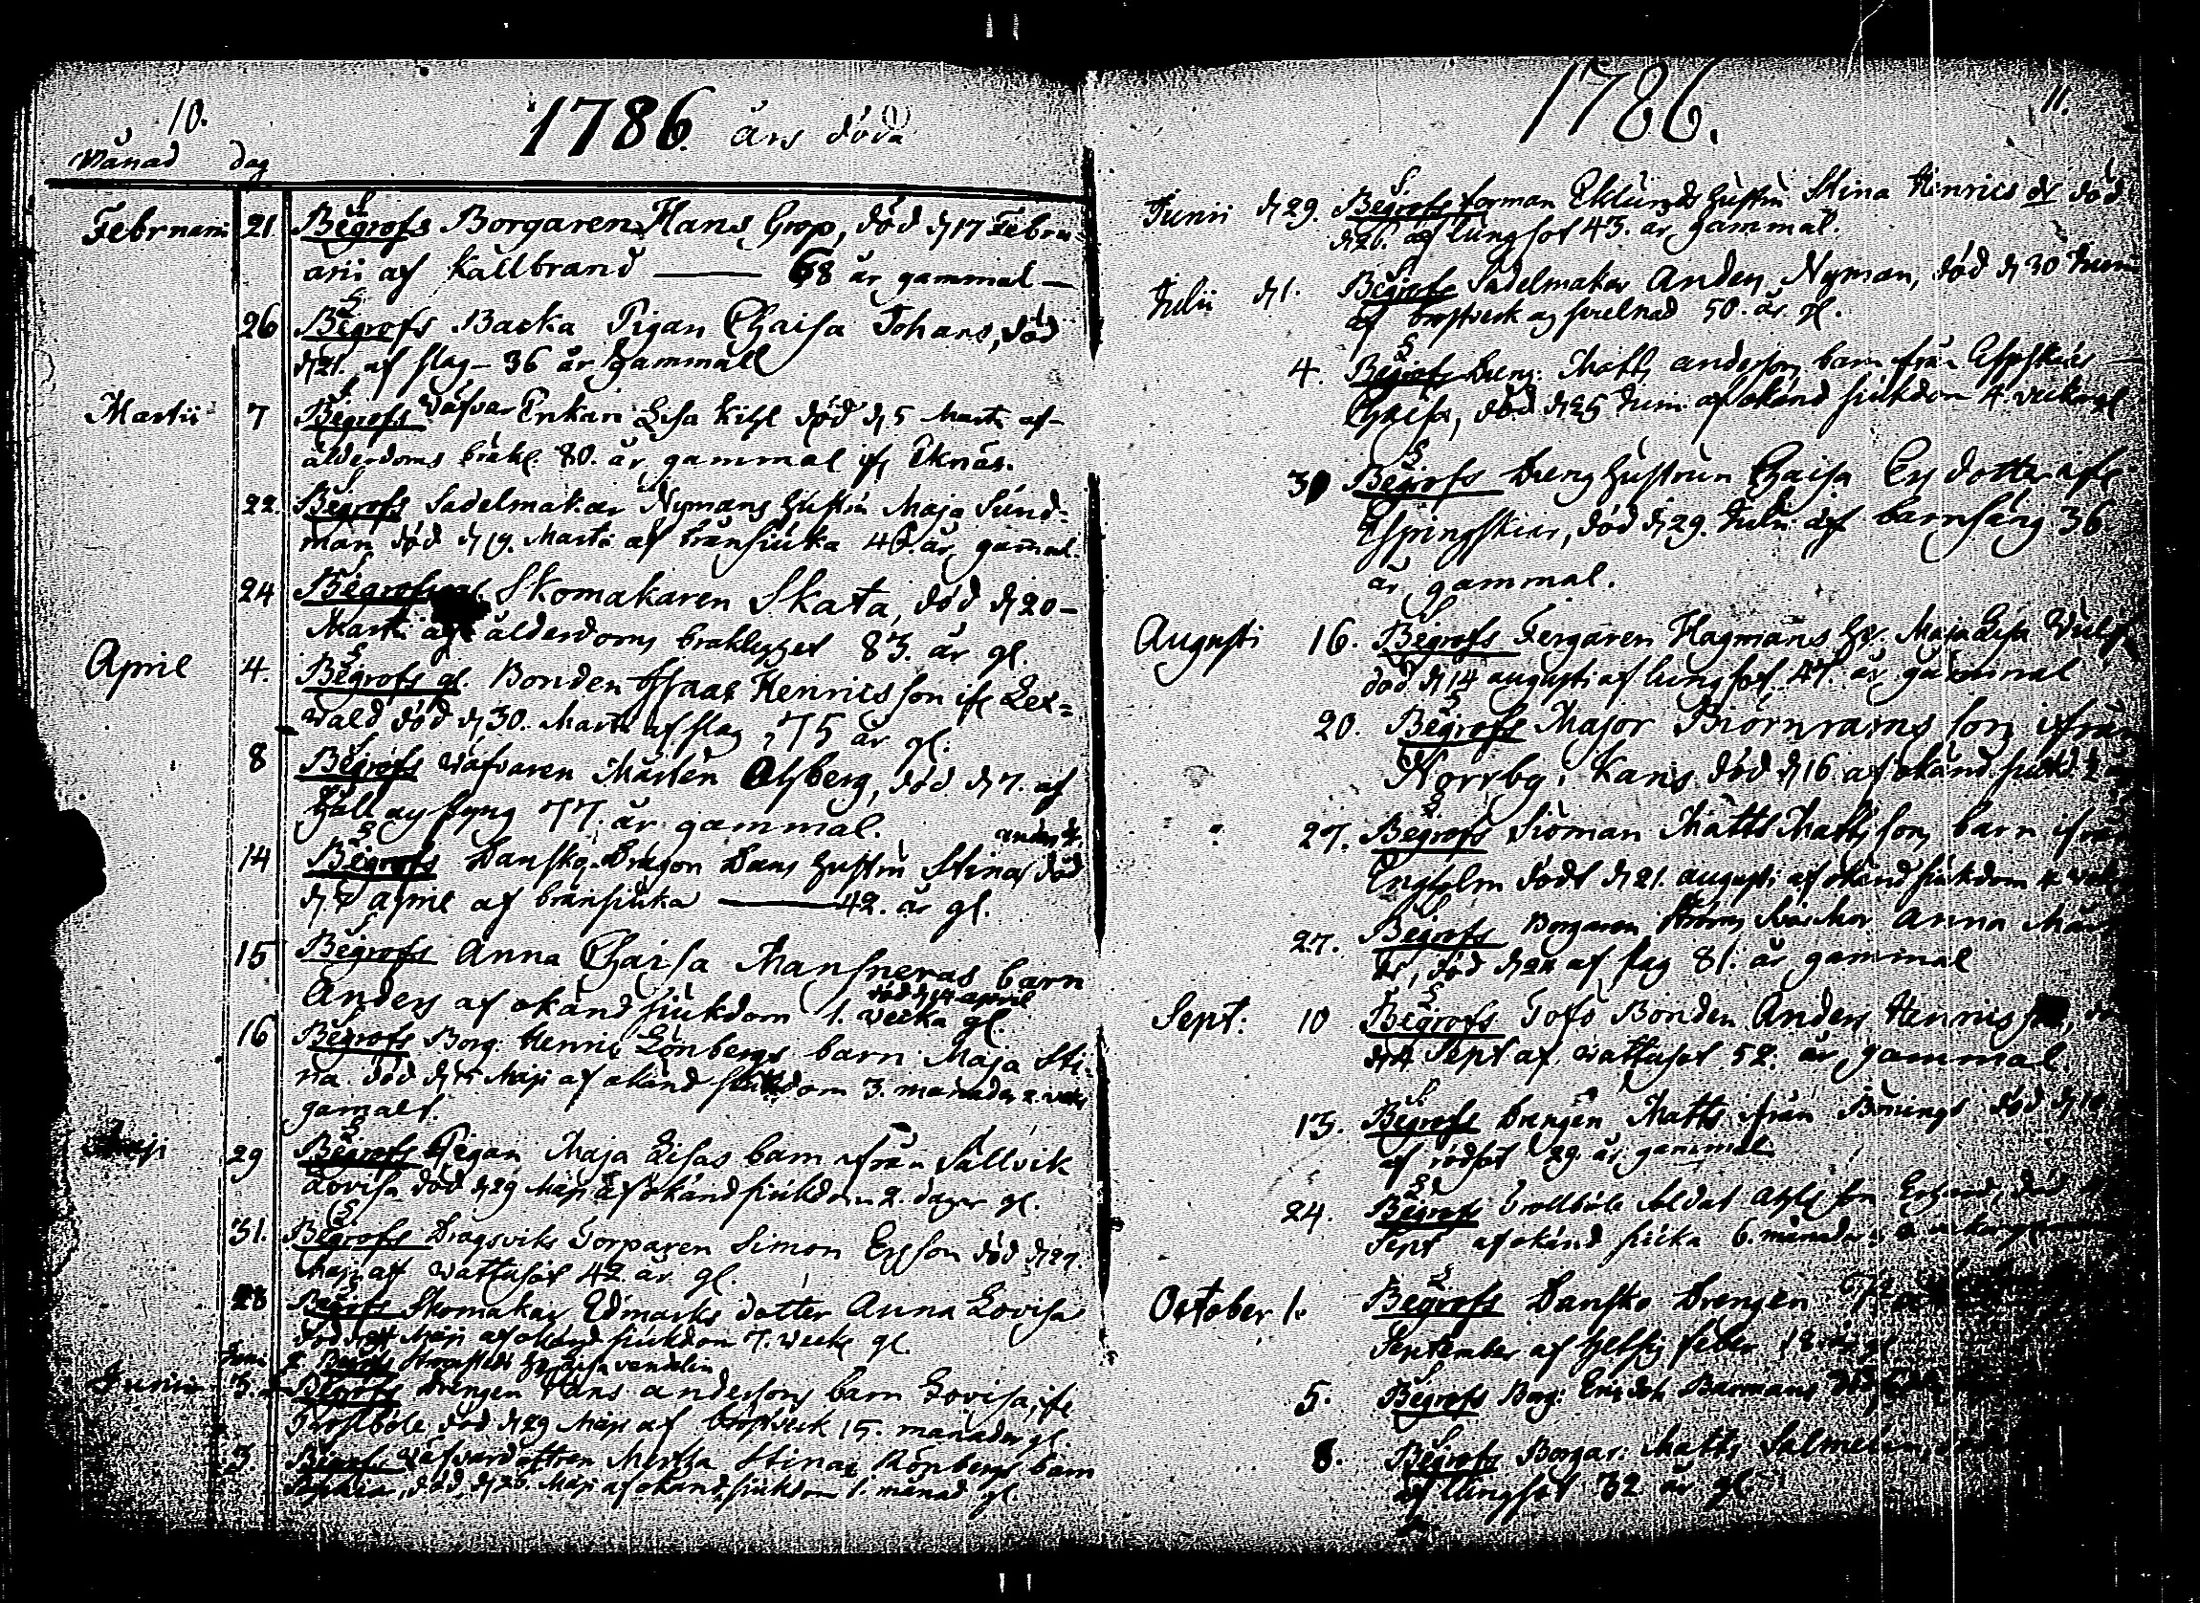 10.
1786 års döda
Månad dag
Februarii 21 Begrofs Borgaren Hans Grop, död d 17 Febru-
arii af kallbrand — 68 år gammal —
26 Begrofs Backa Pigan Chaisa Johans, död
d 21. af slag – 36 år gammall
Martii 7 Begrofs Väfvar Enkan Lisa död d 5 Martii af
ålderdoms bräkl. 80. år gammal if Eknäs.
22. Begrofs Sadelmakar Nymans Hustru Maja Sund-
man död d 19. Martii af bränsiuka 46. år gam̅al.
24 Begrofs Skomakaren Skata, död d 20 –
Martii af ålderdoms braklighet 83. år gl.
April 4. Begrofs gl. Bonden Isaac Henricsson if Lex-
wald död d 30. Martii af slag, 75 år gl.
8 Begrofs Väfvaren Mårten Ahlberg, död d 7. af
håll og styng 77. år gammal.
14 Begrofs Dansko Dragon Dans Hustru Stina anders d. död
d. 7 april af bränsiuka — 42. år gl.
15 Begrofs Anna Chaisa Mansneras barn
Anders af okänd siukdom 1. wecka gl. död d 14 april
16 Begrofs Borg: Henric Lönbergs barn Maja Sti-
na. död d Maji af okänd siukdom 3. månader 2. veck
gamalt.
Maji 29 Begrofs Pigan Maja Lisas barn ifrån Sällvik
Lovisa död d 29 Maji af okänd siukdom 2. dagar gl.
31. Begrofs Dragsviks Torparen Simon Ersson död d 27.
Maji af wattusot 42. år gl.
28 Begrofs Skomakar Edmarks dotter Anna Lovisa
död d Maji af okänd siukdom 7. weck gl.
Juni 2 Begrofs Lisa vendelin
Junii 3. Begrofs Drengen Hans anderssons barn Lovisa, if
Trollböle, död d 29 Maji af bröstverk 15. månader gl.
3. Begrofs Väfvardottren Mertha Stina Rönbergs barn
död d 26. Maji af okänd siukdom 1. månad gl.
1786.
11.
Junii d 29. Begrofs forman Eklunds Hustru Stina Henrics dr död
d 26. af lungsot 43. år gammal.
Julii d 1. Begrofs Sadelmakar Anders Nyman, död d 30 Junii
af bröstverk og 50. år gl.
4. Begrofs Dreng: Matts anderssons barn från
Chaisa, död d 25 Junii af okänd siukdom 4 veckor gl
30 Begrofs Dreng Hustrun Chaisa Ers dotter ifr
Espingskiär, död d 29. Julii af barnsäng 36
år gammal.
Augusti 16. Begrofs Fergaren Hagmans Hr. Maja Lisa
död d 14 augusti af lungsot 47. år gammal
20. Begrofs Major Biörnrams son ifrån
Norrby i Karis död d 16 af okänd siukd.
27. Begrofs Sioman Matts Mattssons barn ifrån
Engholm födt d 21. augusti af okänd siukdom 4
27. Begrofs Borgaren Ströms Svär Mor Anna
dr, död d 24 af slag 81. år gammal
Sept: 10 Begrofs Tofö Bonden Anders Henricsson,
d 4 Sept af wattusot 52. år gammal
13. Begrofs Drengen Matts ifrån död d 10
af rödsot 29 år gammal
24. Begrofs Trollböle Soldat son död
Sept af okänd siuka 6. månader
October 1. Begrofs Dansko Drengen
September af hetsig feber 18
5. Begrofs Borg:
8. Begrofs Borgar: Matts
af lungsot 32 år gl